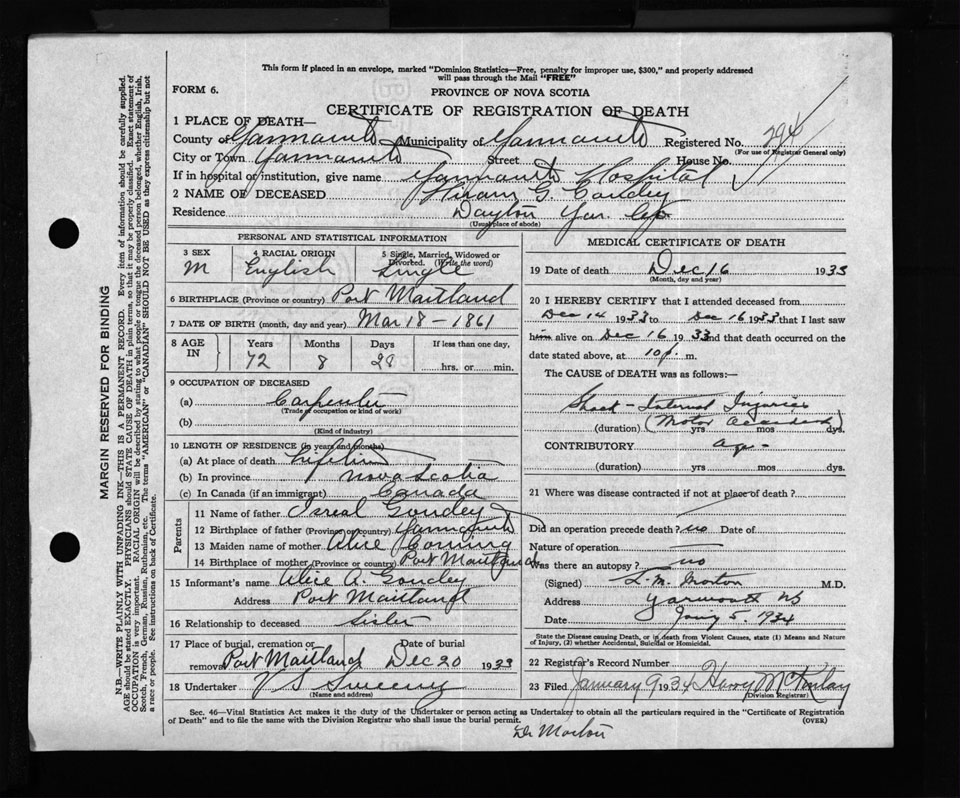 This form if placed in an envelope, marked "Dominion Statistics—Free, penalty for improper use, $300," and properly addressed
will pass through the Mail "FREE"
FORM 6.
PROVINCE OF NOVA SCOTIA
CERTIFICATE OF REGISTRATION OF DEATH
1 PLACE OF DEATH—
County of Yarmouth Municipality of Yarmouth Registered No. 294
(For use of Registrar General only)
City or Town Yarmouth Street House No.
If in hospital or institution, give name Yarmouth Hospital
2 NAME OF DECEASED Hiram G. Goudey
Residence Dayton Yar. Co.
(Usual place of abode)
PERSONAL AND STATISTICAL INFORMATION
3 SEX 4 RACIAL ORIGIN 5 Single, Married, Widowed or Divorced. (Write the word)
M English Single
6 BIRTHPLACE (Province or country) Port Maitland
7 DATE OF BIRTH (month, day and year) Mar 18 – 1861
8 AGE IN Years Months Days If less than one day,
72 8 28 hrs. or min.
9 OCCUPATION OF DECEASED
(a) Carpenter
(Trade of occupation or kind of work)
(b)
(Kind of industry)
10 LENGTH OF RESIDENCE (in years and months)
(a) At place of death Lifetime
(b) In province Nova Scotia
(c) In Canada (if an immigrant) Canada
Parents
11 Name of father Isreal Goudey
12 Birthplace of father (Province or country) Yarmouth
13 Maiden name of mother Alice Corning
14 Birthplace of mother (Province or country) Port Maitland
15 Informant's name Alice A. Goudey
Address Port Maitland
16 Relationship to deceased Sister
17 Place of burial, cremation or removal Port Maitland Date of burial Dec 20 1933
18 Undertaker V S Sweeny
(Name and address)
MEDICAL CERTIFICATE OF DEATH
19 Date of death Dec 16 1933
(Month, day and year)
20 I HEREBY CERTIFY that I attended deceased from
Dec 14 1933 to Dec 16 1933 that I last saw
him alive on Dec 16 1933 and that death occurred on the
date stated above, at 10 p. m.
The CAUSE of DEATH was as follows:—
Shock – Internal Injuries
(duration) (Motor Accident) yrs mos dys.
CONTRIBUTORY age –
(duration) yrs mos dys.
21 Where was disease contracted if not at place of death?
Did an operation precede death? no Date of
Nature of operation
Was there an autopsy? no
(Signed) L. M. Morton M.D.
Address Yarmouth NS
Date Jany 5. 1934
State the Disease causing Death, or in death from Violent Causes, state (1) Means and Nature
of Injury, (2) whether Accidental, Suicidal or Homicidal.
22 Registrar's Record Number
23 Filed January 9 1934 Harvey McKinlay
(Division Registrar)
Sec. 46—Vital Statistics Act makes it the duty of the Undertaker or person acting as Undertaker to obtain all the particulars required in the "Certificate of Registration
of Death" and to file the same with the Division Registrar who shall issue the burial permit. (OVER)
Dr Morton
MARGIN RESERVED FOR BINDING
N.B.—WRITE PLAINLY WITH UNFADING INK—THIS IS A PERMANENT RECORD. Every item of information should be carefully supplied.
AGE should be stated EXACTLY. PHYSICIANS should STATE CAUSE OF DEATH in plain terms, so that it may be properly classified. Exact statement of
OCCUPATION is very important. RACIAL ORIGIN will be described by stating to what people or tongue the deceased person belonged, whether English, Irish,
Scotch, French, German, Russian, Ruthenian, etc. The terms "AMERICAN" or "CANADIAN" SHOULD NOT BE USED as they express citizenship but not
a race or people. See instructions on back of Certificate.